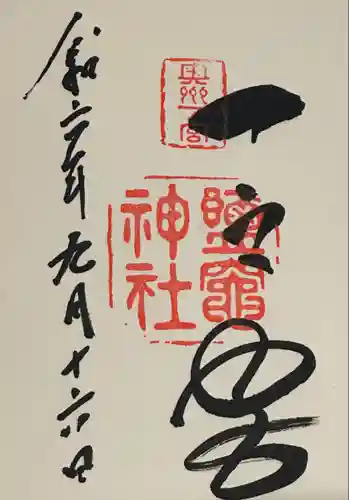 奥州一宮
一之宮
鹽竈神社
令和六年九月十六日